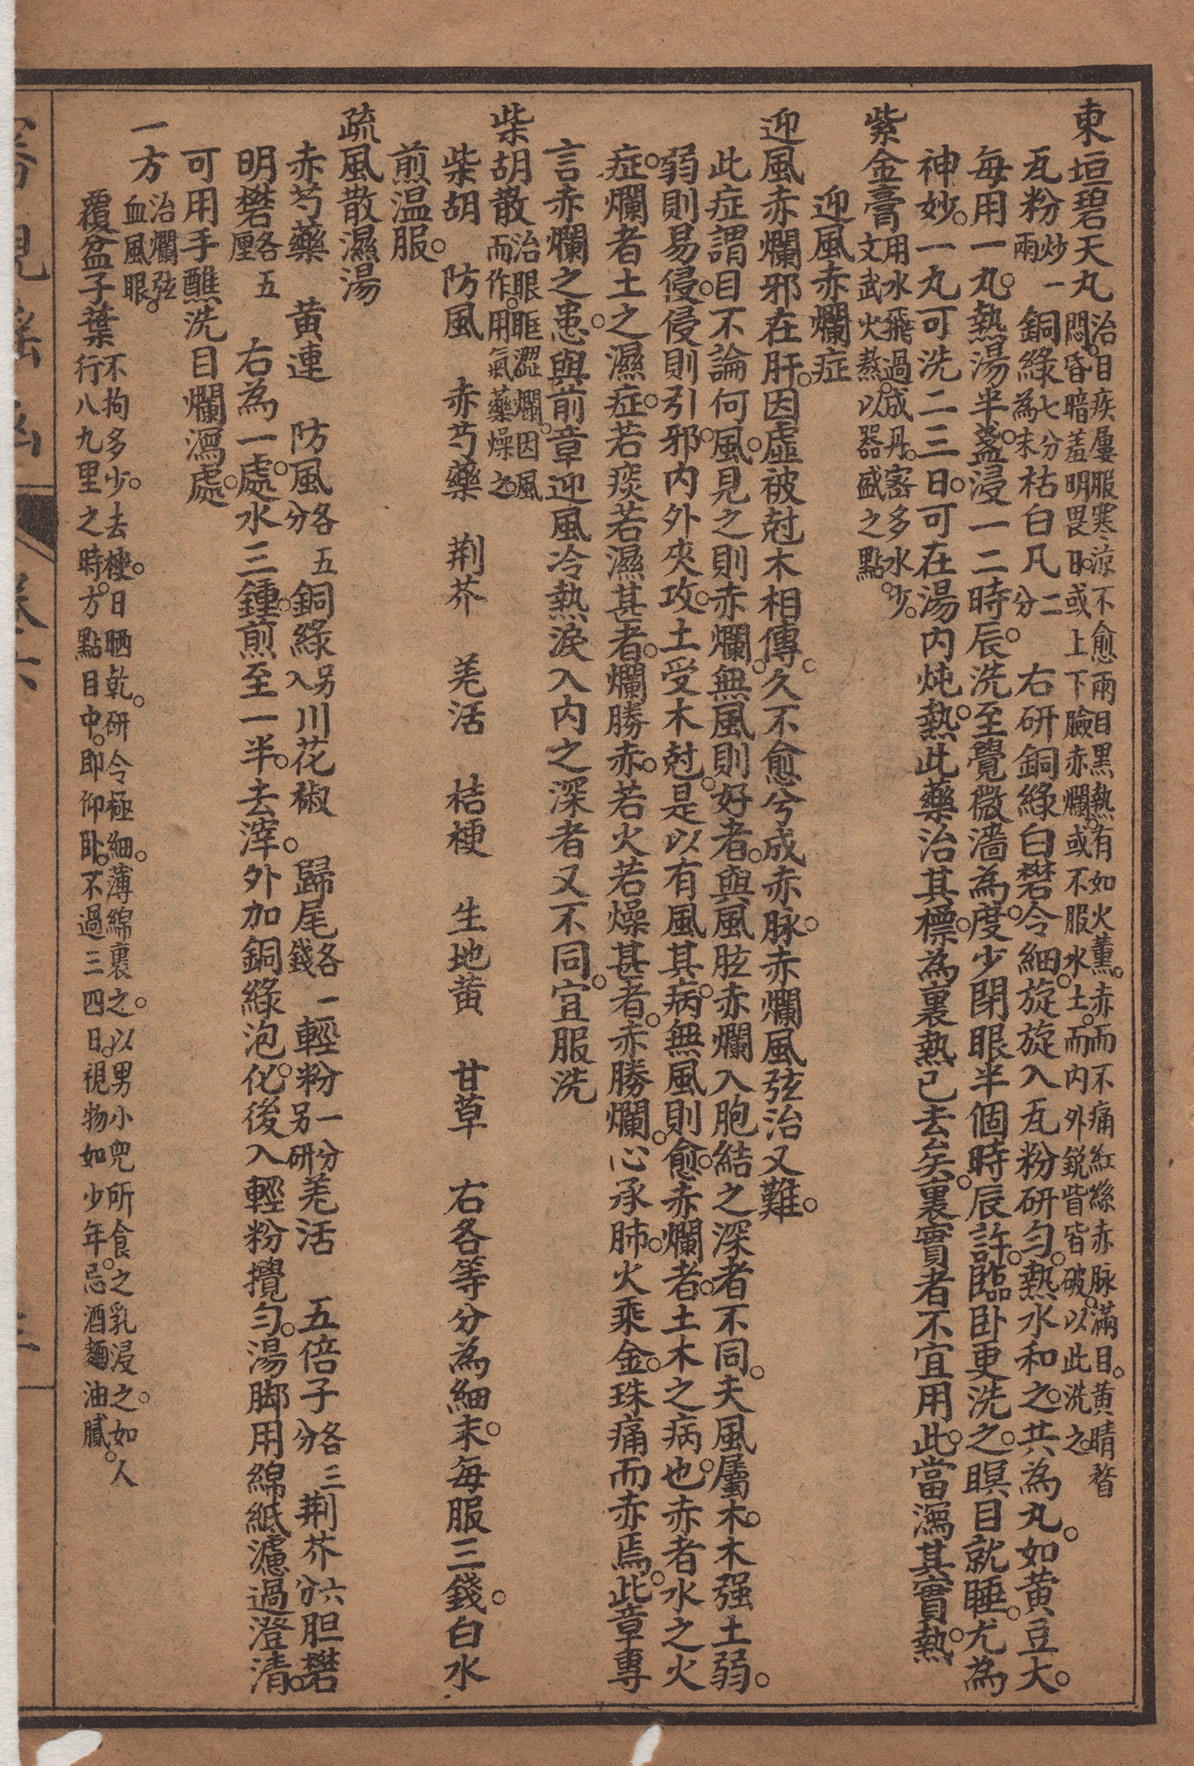 東垣碧天丸治目疾屢服寒涼不愈兩目黑熱有如火薰赤而不痛紅絲赤脉滿目黃睛瞀
悶昏暗羞明畏日或上下臉赤爛或不服水土而內外銳眥皆破以此洗之
瓦粉炒一兩 銅綠七分為末 枯白凡二分 右研銅綠白礬令細旋旋入瓦粉研勻熱水和之共為丸如黃豆大
每用一丸熱湯半盞浸一二時辰洗至覺微濇為度少閉眼半個時辰許臨卧更洗之瞑目就睡尤為
神妙一丸可洗二三日可在湯內炖熱此藥治其標為裏熱已去矣裏實者不宜用此當瀉其實熱
紫金膏用水飛過成丹蜜多水少文武火熬以器盛之點
迎風赤爛症
迎風赤爛邪在肝因虛被尅木相傳久不愈兮成赤脉赤爛風弦治又難
此症謂目不論何風見之則赤爛無風則好者與風弦赤爛入胞結之深者不同夫風屬木木强土弱
弱則易侵侵則引邪內外夾攻土受木尅是以有風其病無風則愈赤爛者土木之病也赤者水之火
症爛者土之濕症若痰若濕甚者爛勝赤若火若燥甚者赤勝爛心承肺火乘金珠痛而赤焉此章專
言赤爛之患與前章迎風冷熱淚入內之深者又不同宜服洗
柴胡散治眼眶澀爛因風而作用氣藥燥之
柴胡 防風 赤芍藥 荆芥 羌活 桔梗 生地黃 甘草 右各等分為細末每服三錢白水
煎溫服
疏風散濕湯
赤芍藥 黃連 防風各五分 銅綠另入 川花椒 歸尾各一錢 輕粉一分另研 羌活 五倍子各三分 荆芥六分 胆礬
明礬各五厘 右為一處水三鍾煎至一半去滓外加銅綠泡化後入輕粉攪勻湯脚用綿紙濾過澄清
可用手蘸洗目爛瀉處
一方治爛弦血風眼
覆盆子葉不拘多少去梗日晒乾研令極細薄綿裹之以男小兒所食之乳浸之如人
行八九里之時方點目中即仰卧不過三四日視物如少年忌酒麵油膩